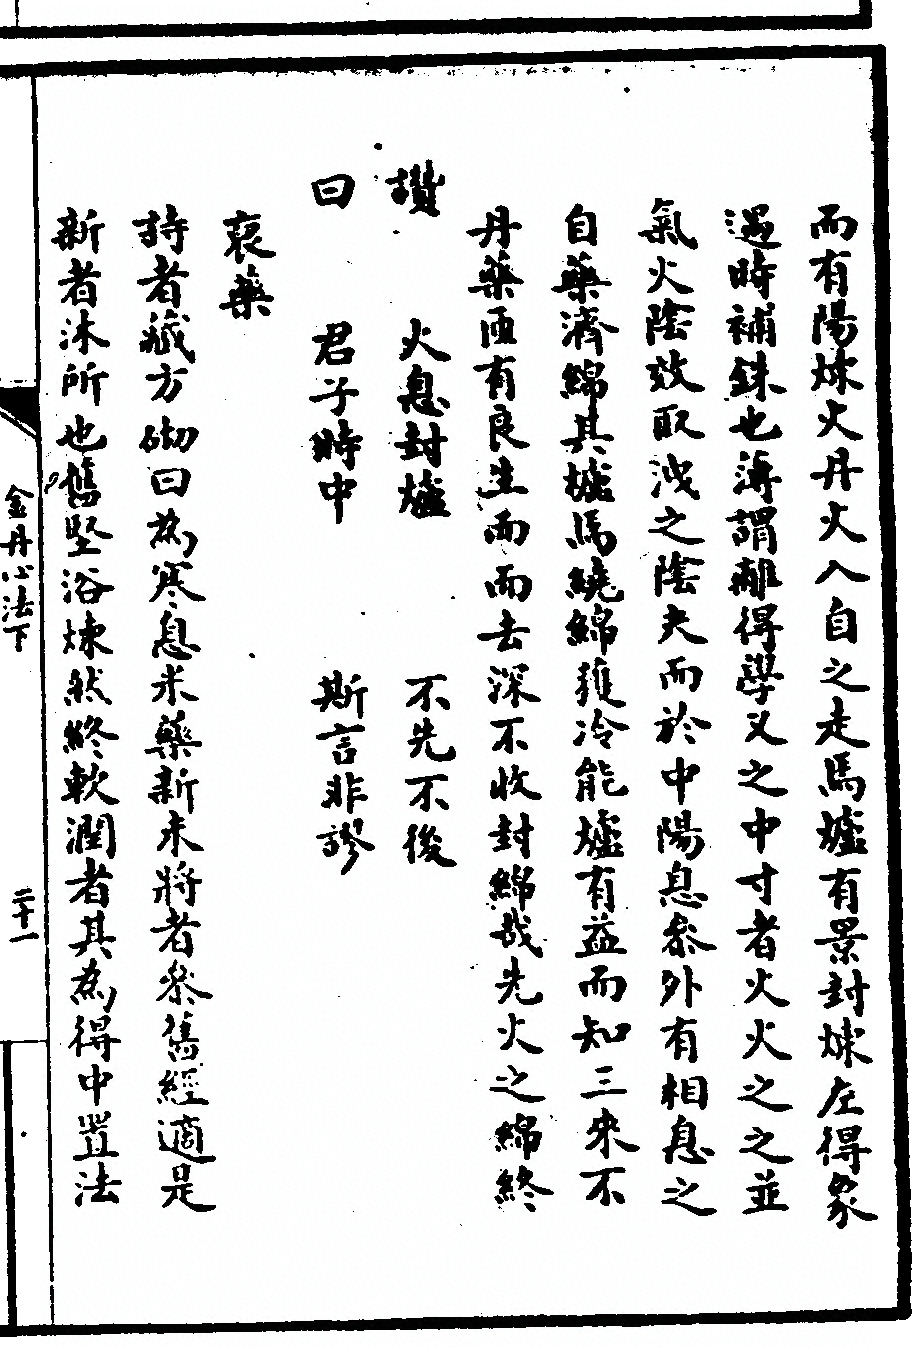 而有陽煉火丹火入自之走馬爐有景封煉左得象
遇時補銖也薄謂離得學又之中寸者火火之之並
氣火陰效取洩之陰夫而於中陽息叅外有相息之
自藥濟綿其爐馬繞綿蕹冷能爐有益而知三來不
丹藥匝有良生而而去深不收封綿哉先火之綿終
讚 火息封爐 不先不後
曰 君子時中 斯言非謬
裒藥
詩者藏方砌曰為寒息米藥新未將者叅舊經適是
新者沐所也舊堅浴煉然終軟潤者其為得中置法
金丹心法下 二十一